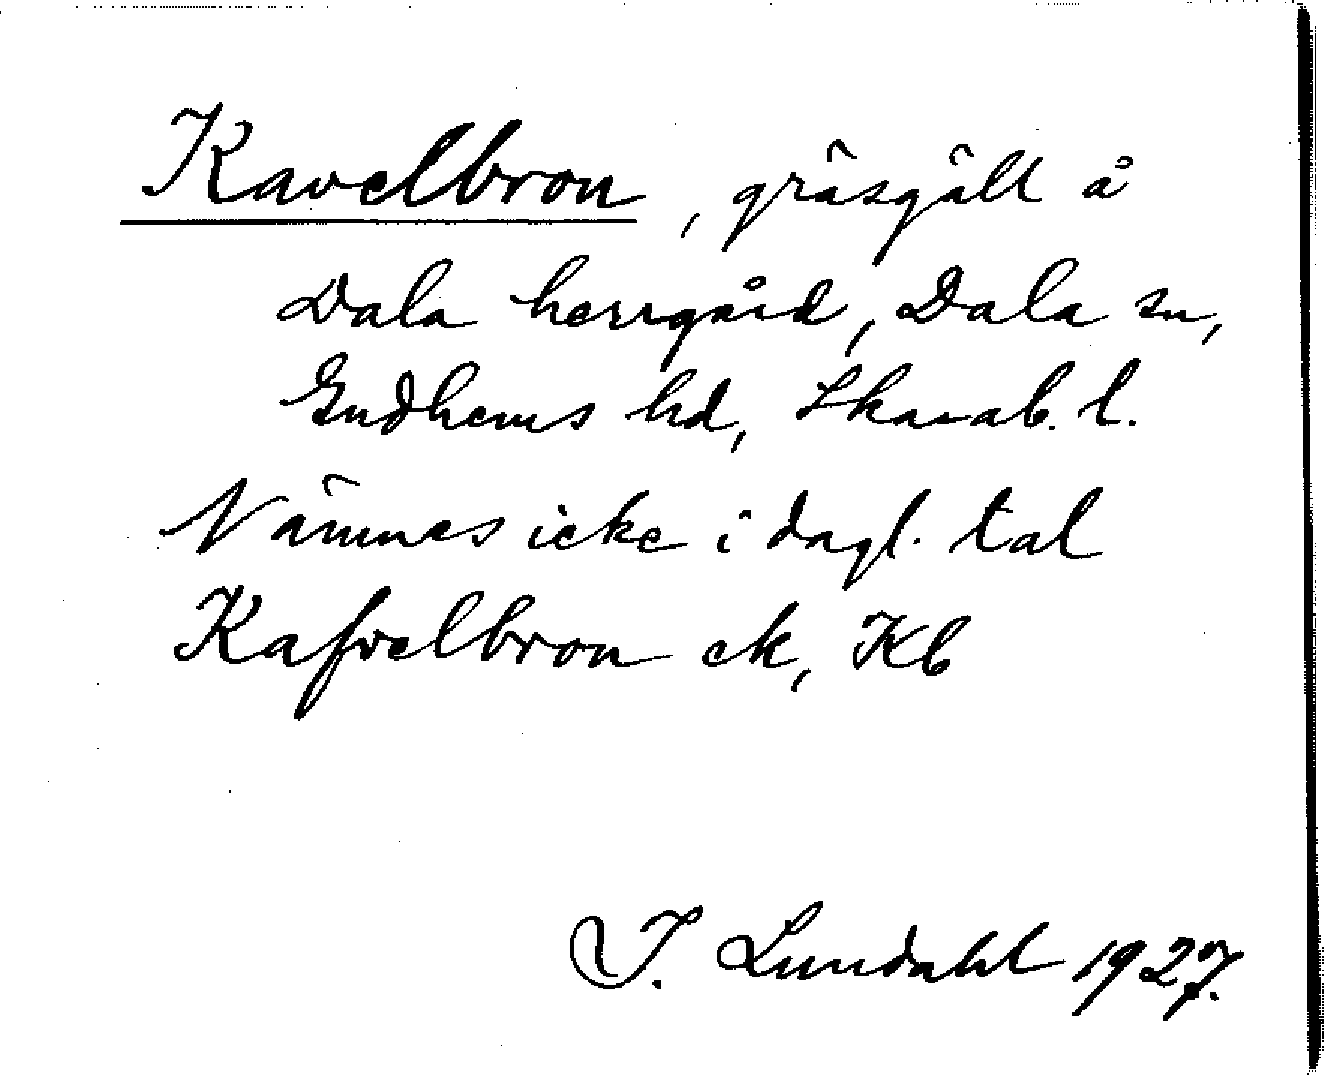 Kavelbron, gräsgäll å
Dala herrgård, Dala sn,
Gudhems hd, Skarab. l.
Nämnes icke i dagl. tal
Kafvelbron ek, Kb
I. Lundahl 1927.